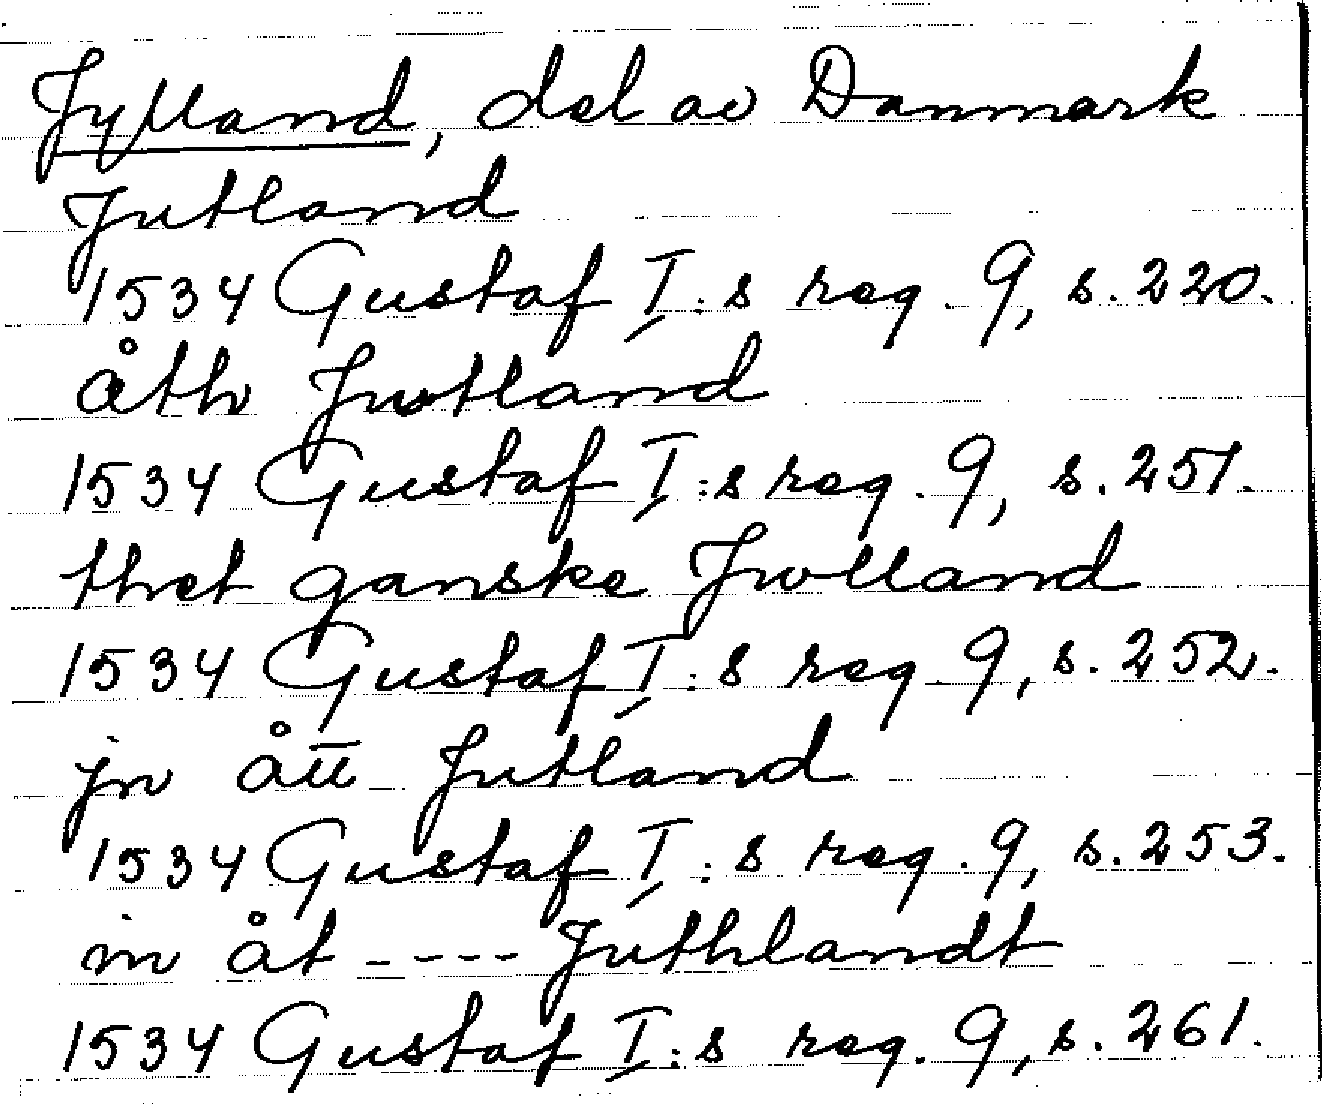 Jylland, del av Danmark
Jutland
1534 Gustaf I:s reg. 9, s. 220.
åth Jwtland
1534 Gustaf I:s reg. 9, s. 251.
thet ganske Jwlland
1534 Gustaf I:s reg 9, s. 252.
jn ått Jutland
1534 Gustaf I:s reg. 9, s. 253.
in åt ---- Juthlandt
1534 Gustaf I:s reg. 9, s. 261.